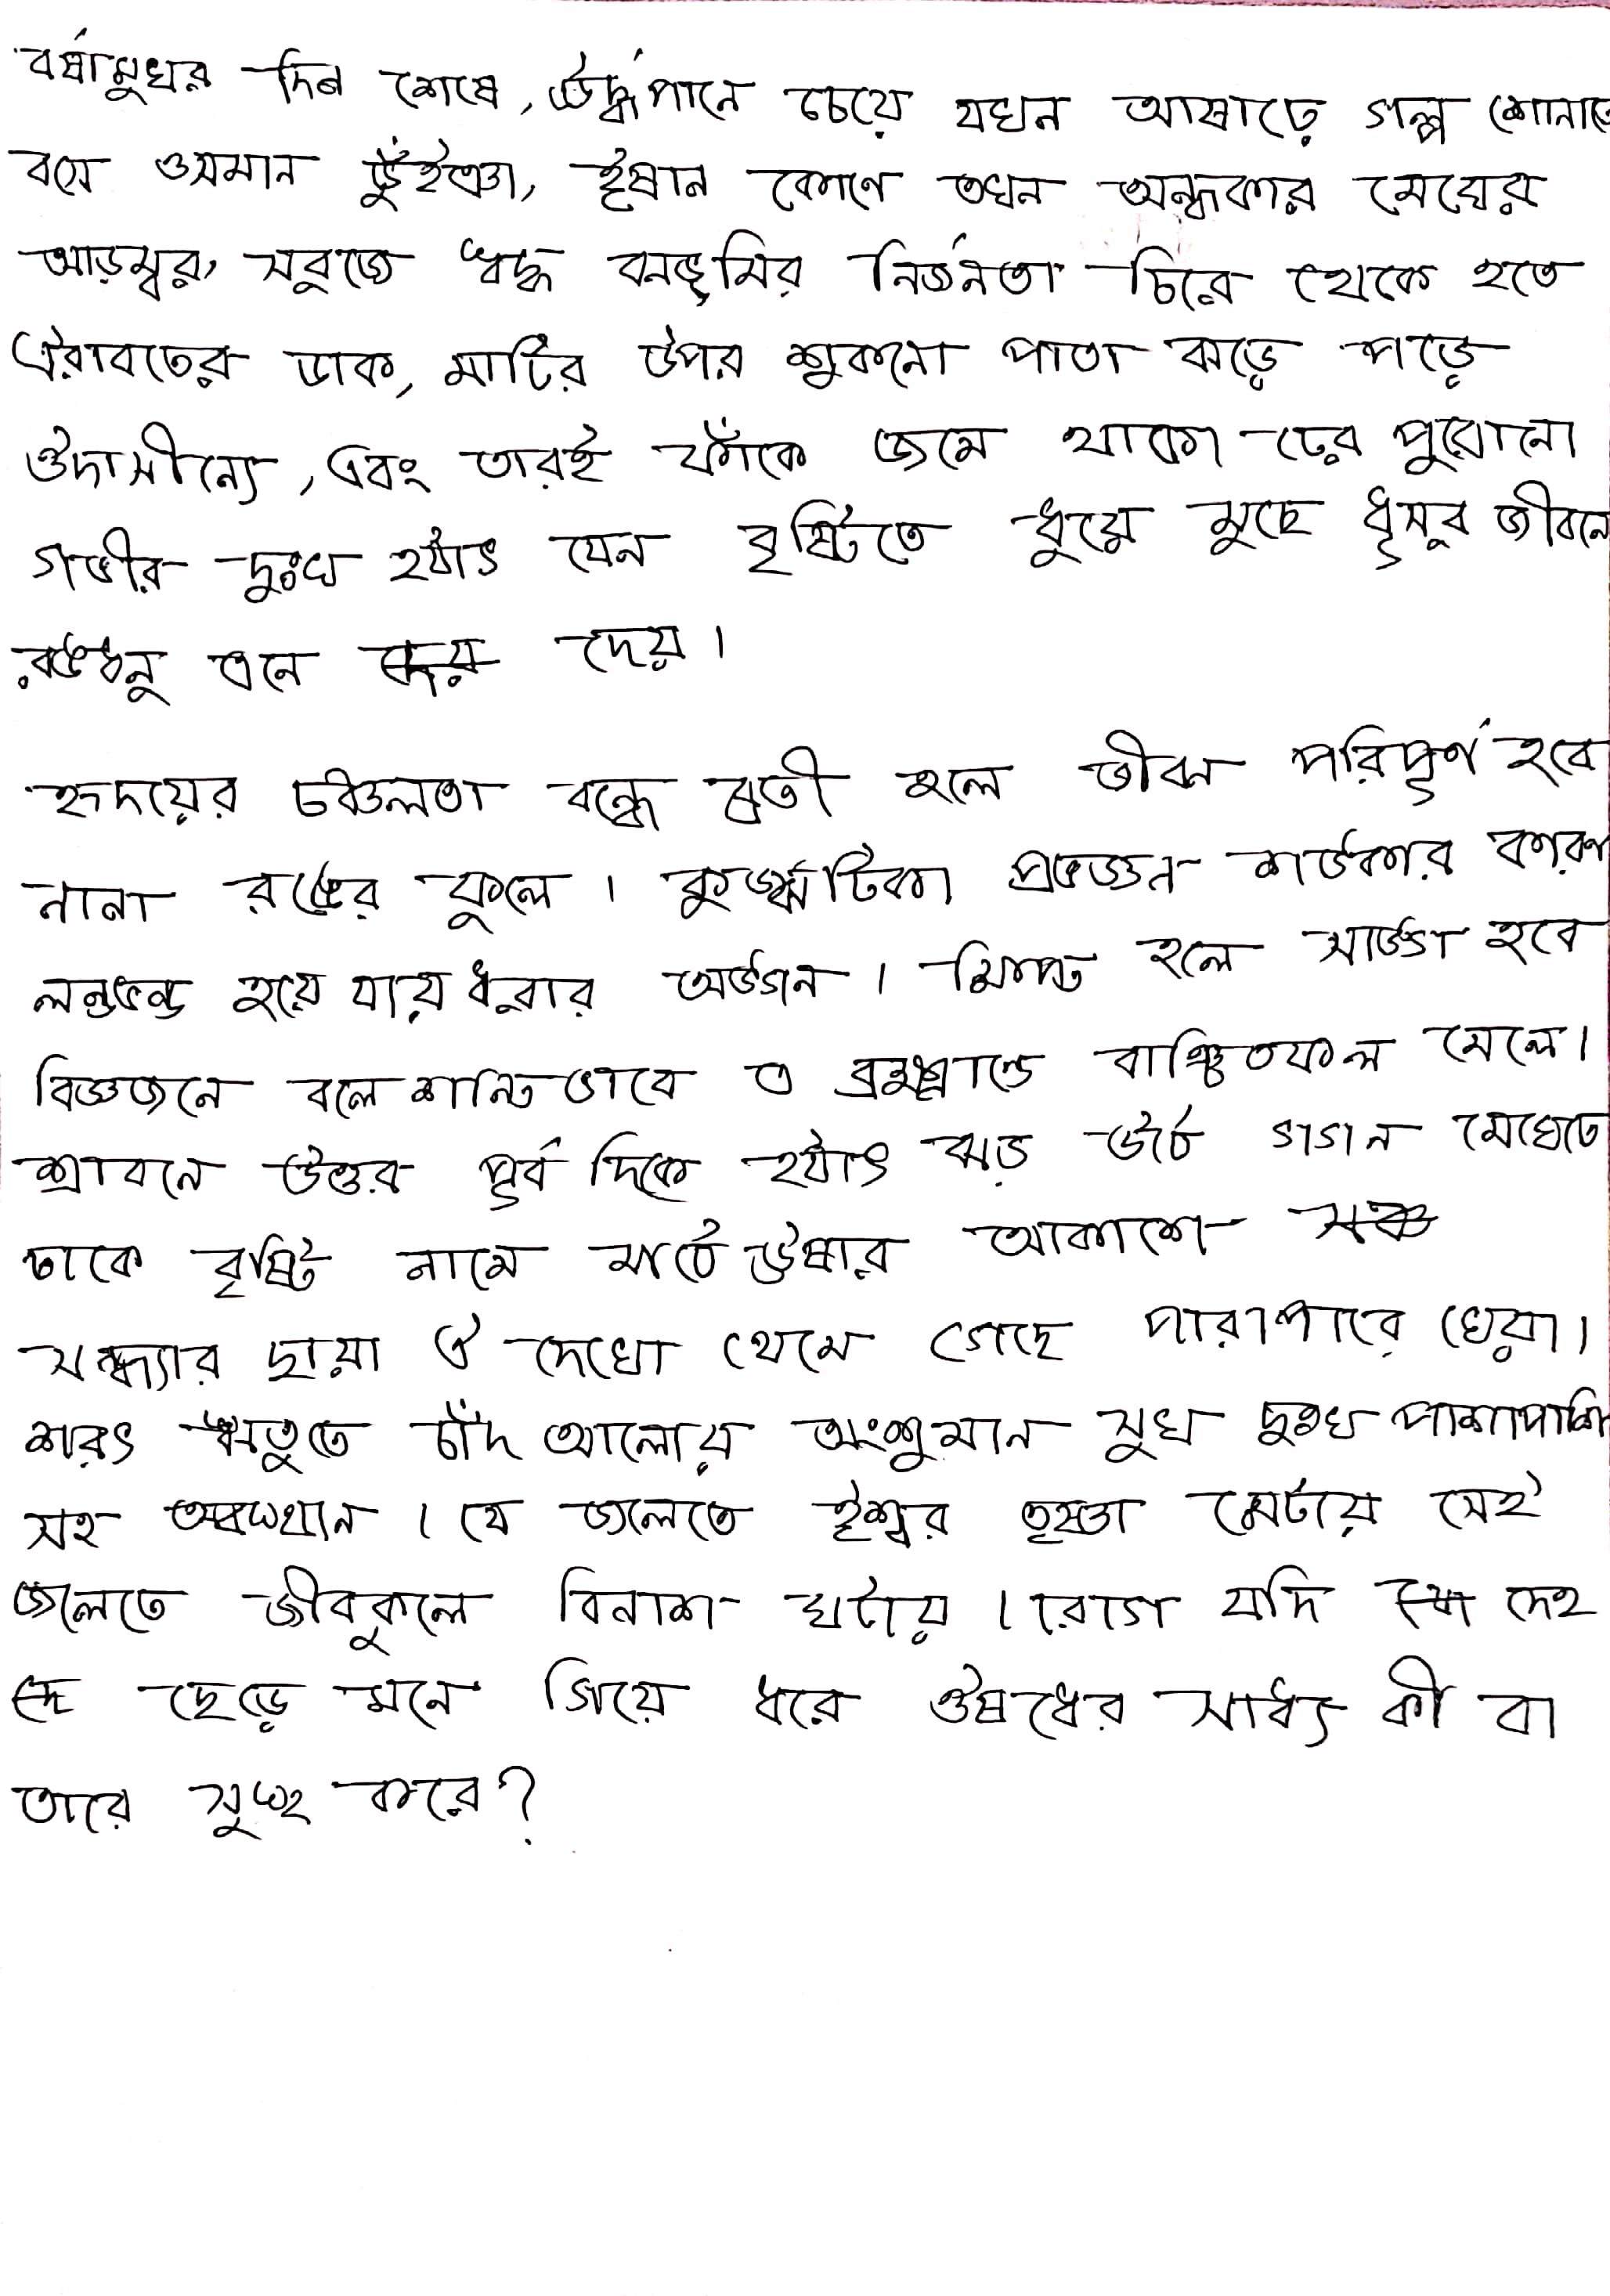 বর্ষামুখর দিন শেষে, উর্দ্ধপানে চেয়ে যখন আষাঢ়ে গল্প শোনাতে
বসে ওসমান ভুঁইঞা, ঈষান কোণে তখন অন্ধকার মেঘের
আড়ম্বর, সবুজে ঋদ্ধ বনভূমির নির্জনতা চিরে থেকে হতে
ঐরাবতের ডাক, মাটির উপর শুকনো পাতা ঝড়ে পড়ে
ঔদাসীন্যে, এবং তারই ফাঁকে জমে থাকা ঢের পুরোনো
গভীর দুঃখ হঠাৎ যেন বৃষ্টিতে ধুয়ে মুছে ধূসর জীবনে
রঙধনু এনে দেয়।
হৃদয়ের চঞ্চলতা বন্ধে ব্রতী হলে জীবন পরিপূর্ণ হবে
নানা রঙের ফুলে। কুজ্ঝটিকা প্রভঞ্জন শঙ্কার কারণ
লন্ডভন্ড হয়ে যায় ধরার অঙ্গন। ক্ষিপ্ত হলে সাঙ্গ হবে
বিজ্ঞজনে বলে শান্তিভাবে এ ব্রহ্মান্ডে বাঞ্ছিতফল মেলে।
শ্রাবনে উত্তর পূর্ব দিকে হঠাৎ ঝড় উঠে গগন মেঘেতে
ঢাকে বৃষ্টি নামে মাঠে উষার আকাশে
সন্ধ্যার ছায়া ঐ দেখো থেমে গেছে পারাপারে খেয়া।
শরৎ ঋতুতে চাঁদ আলোয় অংশুমান সুখ দুঃখ পাশাপাশি
সহ অবস্থান। যে জলেতে ঈশ্বর তৃষ্ণা মেটায় সেই
জলেতে জীবকুলে বিনাশ ঘটায়। রোগ যদি দেহ
ছেড়ে মনে গিয়ে ধরে ঔষধের সাধ্য কী বা
তারে সুস্থ করে?